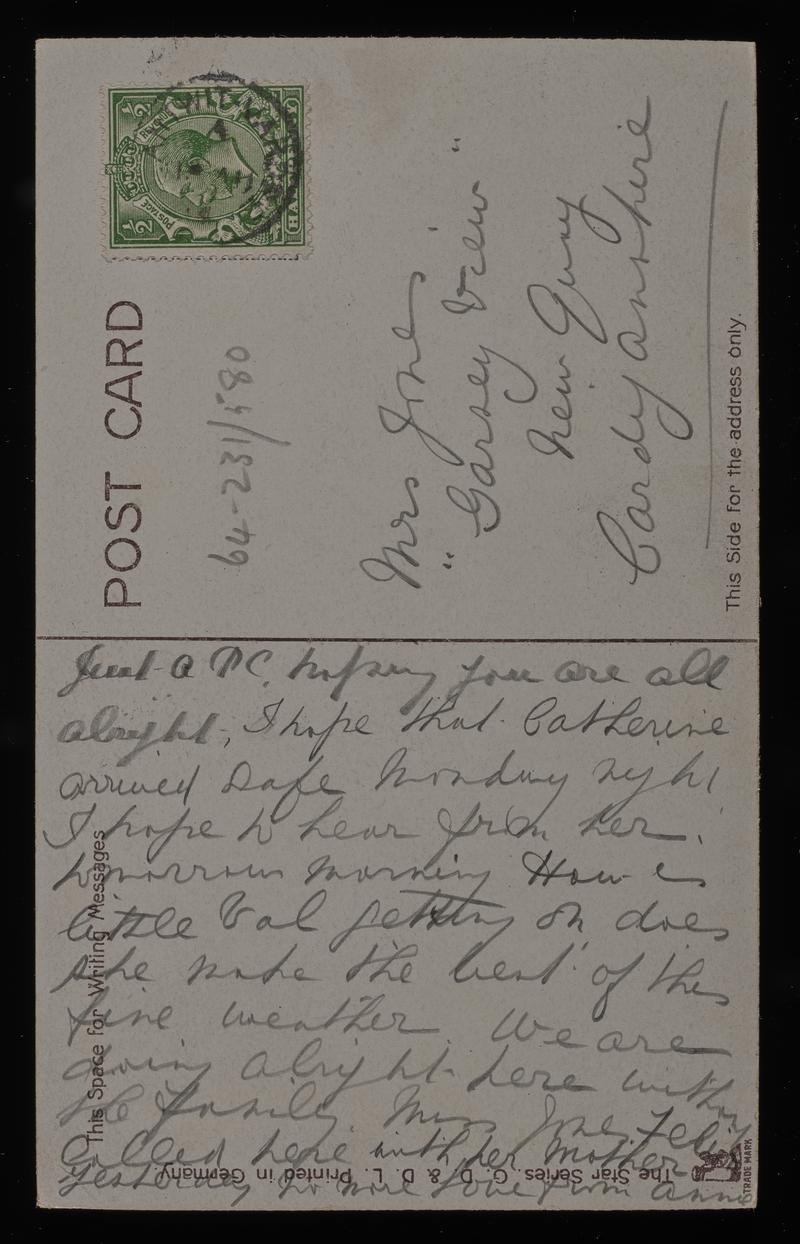 POST CARD
64-231/580
Mrs Jones
"Garsey View"
New Quay
Cardyanshire
This Side for the address only.
½ POSTAGE REVENUE ½
HA
This Space for Writing Messages
Just a P C, hoping you are all
alright, I hope that Catherine
arrived safe Monday night
I hope to hear from her
tomorrow morning How is
little Val getting on does
she make the best of this
fine weather We are
doing alright here with
the family Miss Jones
Called here with her Mother
Yesterday no more love from Annie
The Star Series. G. D. & D. L. Printed in Germany
TRADE MARK